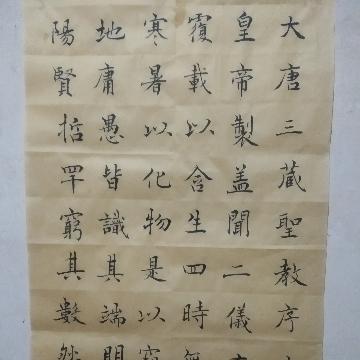 大唐三藏聖教序
皇帝製盖聞二儀
覆載以含生四時無
寒暑以化物是以
地庸愚皆識其端明
陽賢哲罕窮其數然